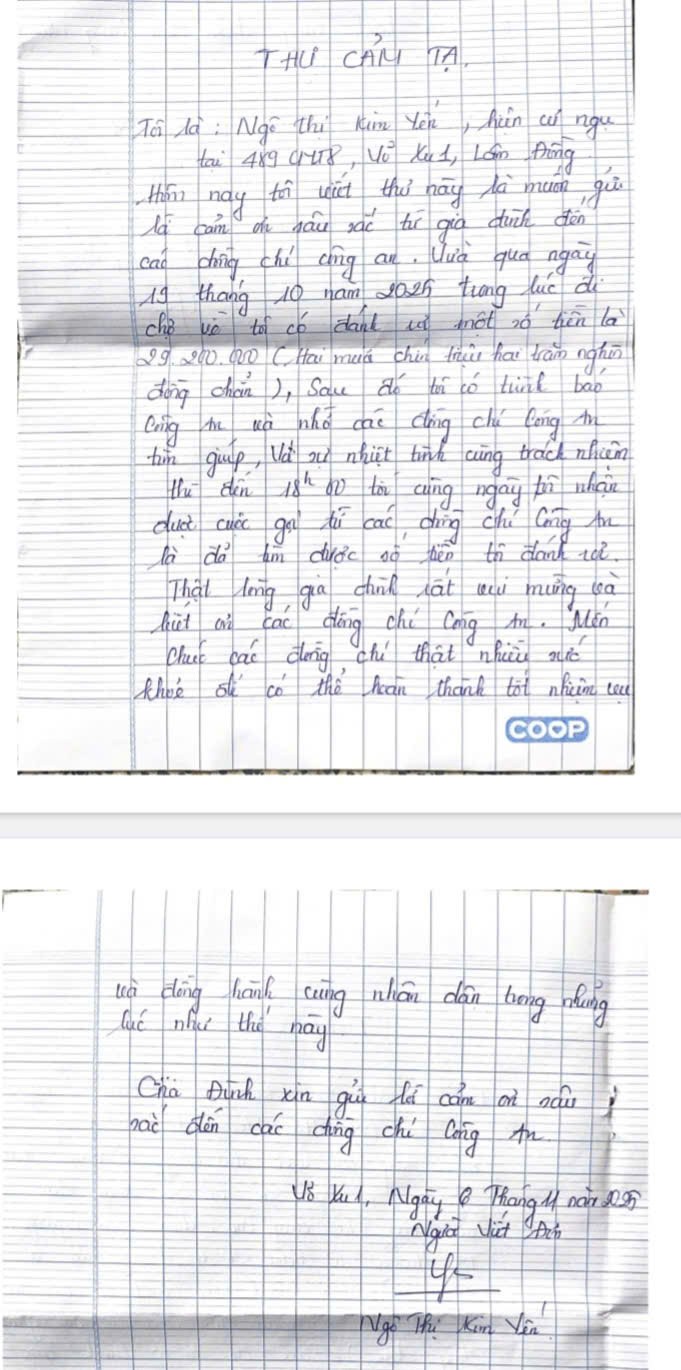 THƯ CẢM TẠ.
Tôi là : Ngô thị Kim Yến, hiện cư ngụ
tại 489 CMT8, Võ Xu 1, Lâm Đồng
Hôm nay tôi viết thư này là muốn gửi
lời cảm ơn sâu sắc từ gia đình đến
các đồng chí công an. Vừa qua ngày
19 tháng 10 năm 2025 trong lúc đi
chợ về tôi có đánh rơi một số tiền là
29.200.000 (Hai mươi chín triệu hai trăm nghìn
đồng chẵn), Sau đó tôi có trình báo
Công An và nhờ các đồng chí Công An
tìm giúp, Với sự nhiệt tình cùng trách nhiệm
thì đến 18h 00 tối cùng ngày tôi nhận
được cuộc gọi từ các đồng chí Công An
là đã tìm được số tiền tôi đánh rơi.
Thật lòng gia đình rất vui mừng và
biết ơn các đồng chí Công An. Mến
Chúc các đồng chí thật nhiều sức
khỏe để có thể hoàn thành tốt nhiệm vụ
COOP
và đồng hành cùng nhân dân trong những
lúc như thế này
Gia Đình xin gửi lời cảm ơn sâu
sắc đến các đồng chí Công An
Võ Xu 1, Ngày 6 Tháng 11 năm 2025
Người Viết Đơn
Ngô Thị Kim Yến